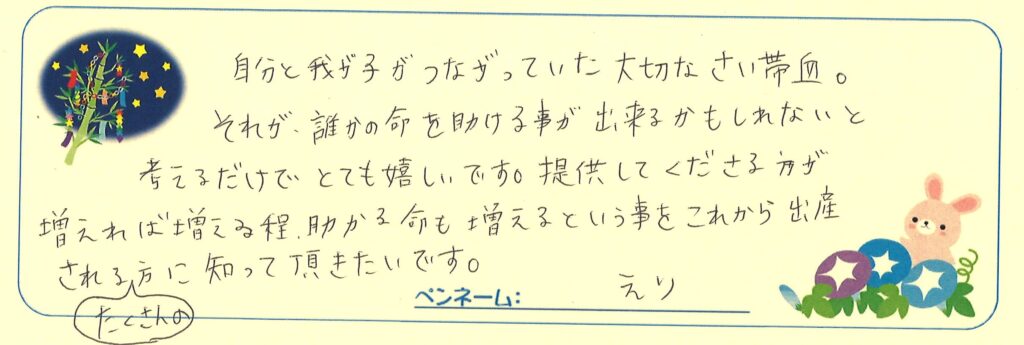 自分と我が子がつながっていた大切なさい帯血。
それが、誰かの命を助ける事が出来るかもしれないと
考えるだけでとても嬉しいです。提供してくださる方が
増えれば増える程、助かる命も増えるという事をこれから出産
される方に知って頂きたいです。
たくさんの
ペンネーム: えり